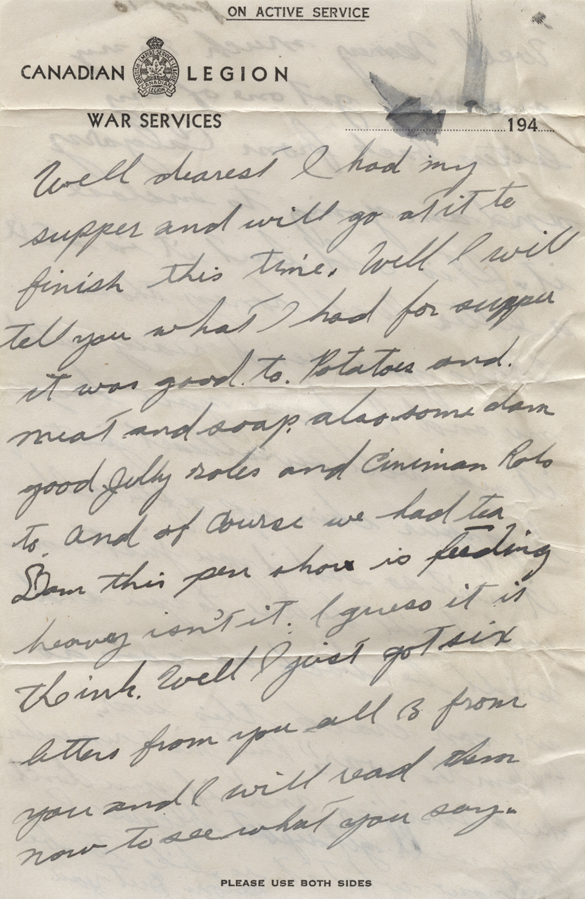 ON ACTIVE SERVICE
CANADIAN LEGION
WAR SERVICES
194
Well dearest I had my
supper and will go at it to
finish this time. Well I will
tell you what I had for supper
it was good to. Potatoes and
meat and soap. also some dam
good Jelly roles and Ciniman Rols
to. And of course we had tea
Dam this pen show is feeding
heavey isn't it. I guess it is
the ink. Well I just got six
letters from you all 3 from
you and I will read them
now to see what you say.
PLEASE USE BOTH SIDES